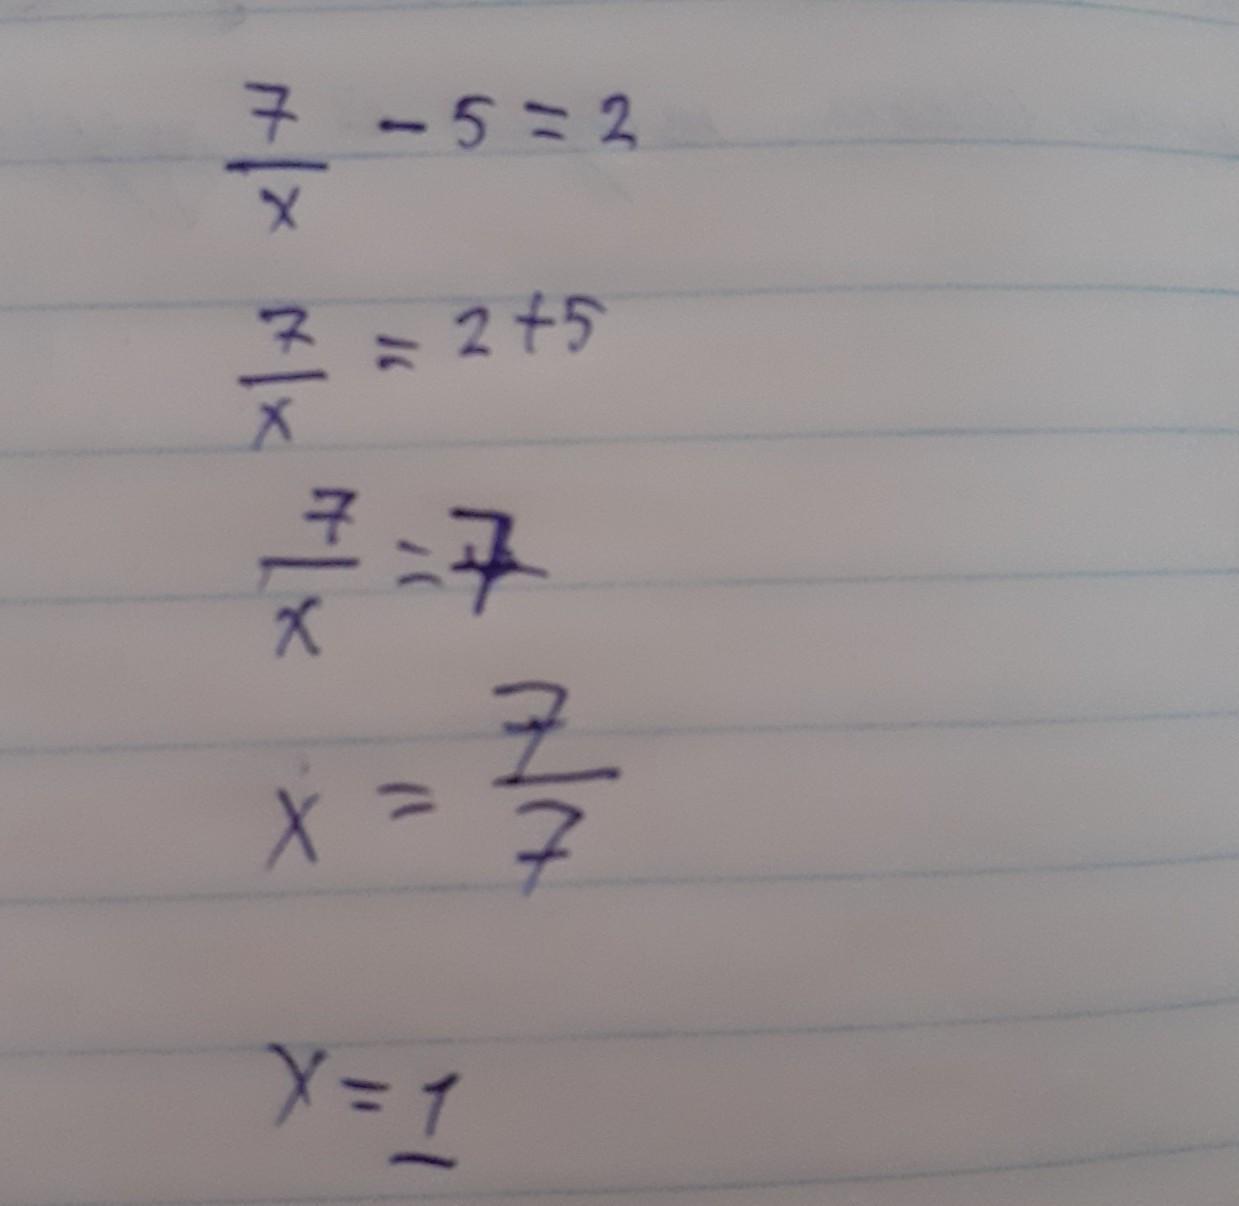 7/x - 5 = 2
7/x = 2 + 5
7/x = 7
x = 7/7
x = 1